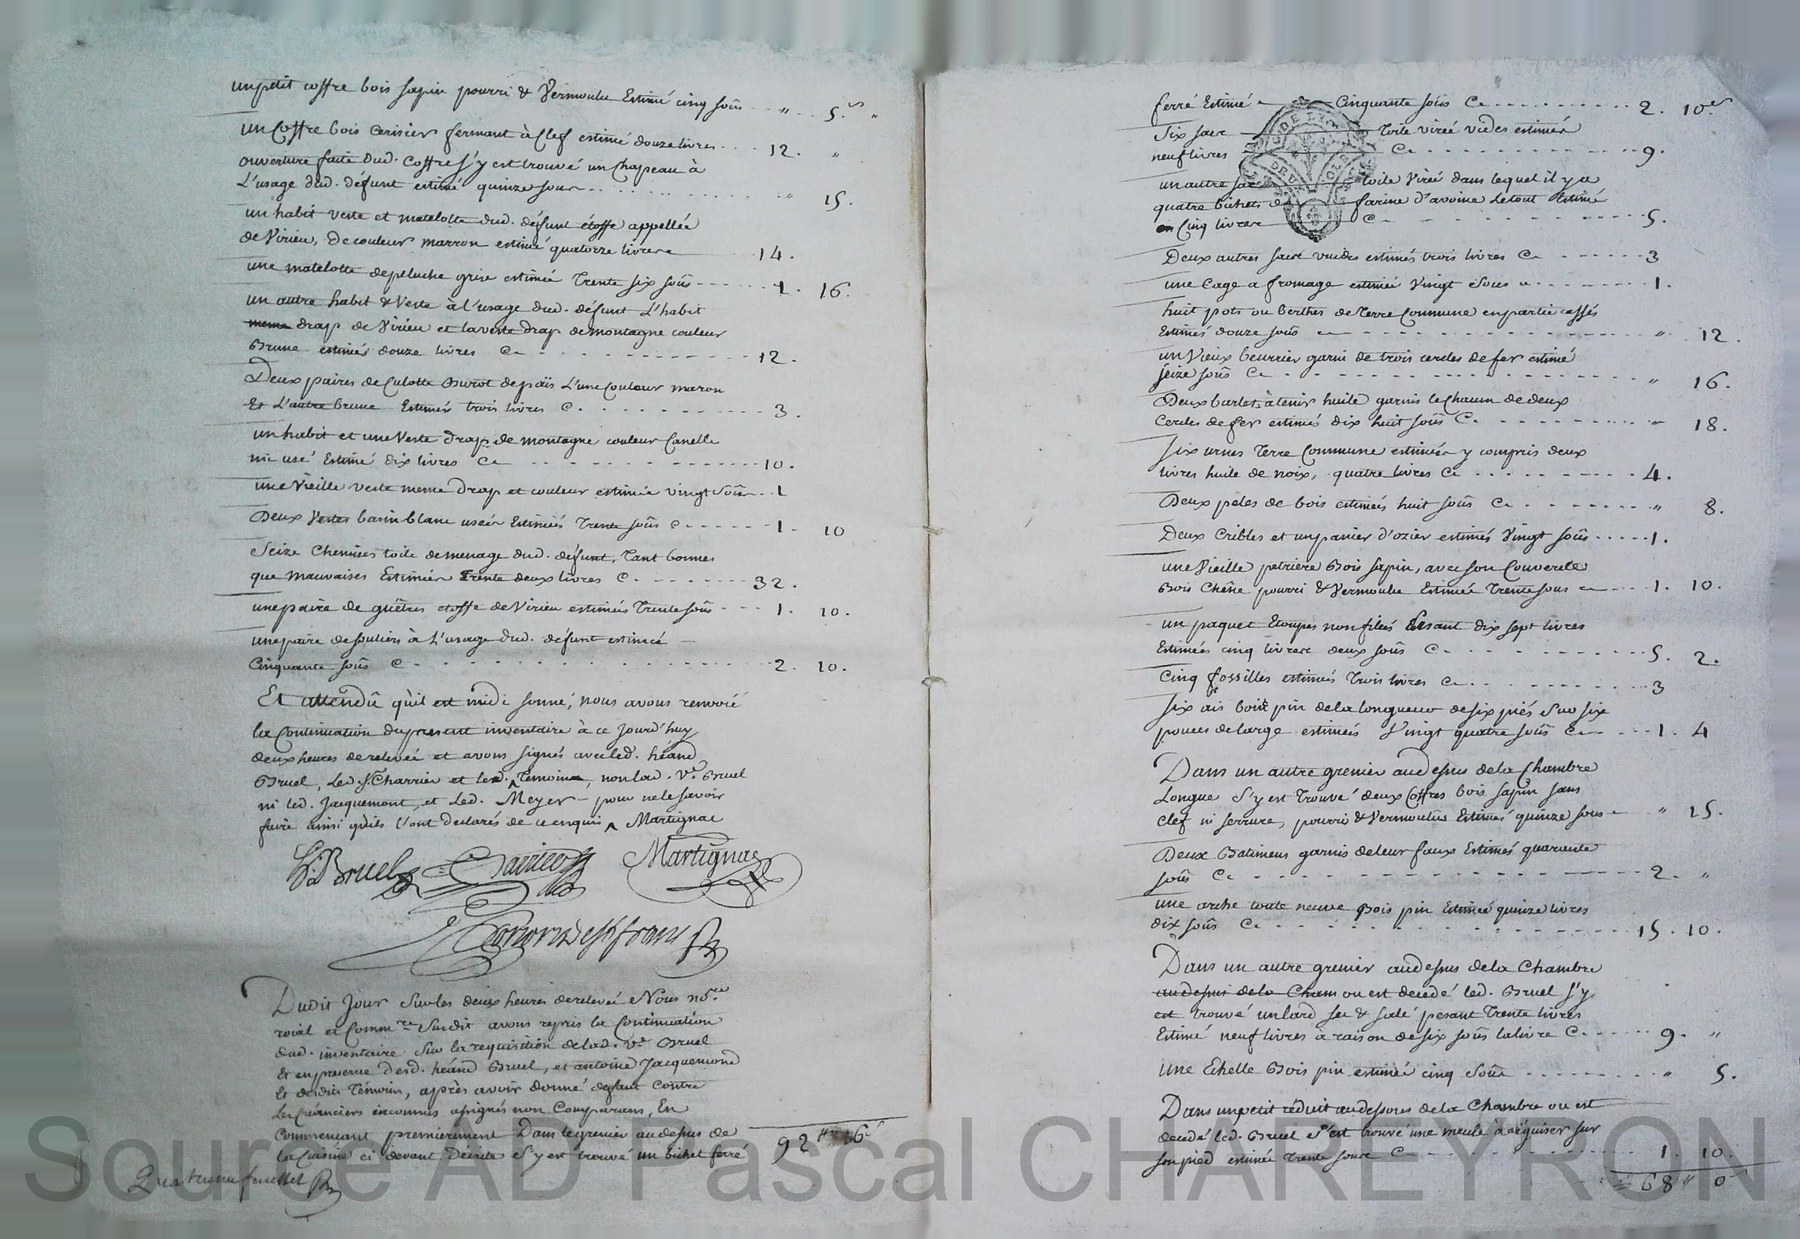 un petit coffre bois sapin pourri & Vermoulu Estimé cinq sous - - - " - 5. s "
un Coffre bois Cerisier fermant à Clef estimé douze livres - - - 12. "
ouverture faite dud. Coffre s'y est trouvé un Chapeau à
L'usage dud. défunt estimé quinze sous - - - " 15.
un habit veste et matelotte dud. défunt étoffe appellée
de Virieu, de couleur marron estimé quatorze livres - - - 14.
une matelotte de peluche grise estimée Trente six sous - - - 1. 16.
un autre habit & Veste à l'usage dud. défunt L'habit
meme drap de Virieu et la veste drap de montagne couleur
Brune estimés douze livres C - - - 12.
Deux paires de Culotte Burat de païs L'une Couleur maron
Et L'autre brune Estimés trois livres C - - - 3.
un habit et une Veste drap de montagne couleur Canelle
mi usé Estimé dix livres C - - - 10.
une Vieille veste meme drap et couleur estimée vingt Sous - - 1
Deux Vestes basin blanc usées Estimées Trente sous C - - - 1. 10
Seize Chemises toile de menage dud. défunt, Tant bonnes
que mauvaises Estimées Trente deux livres C - - - 32.
une paire de guêtres étoffe de Virieu estimées Trente sous - - - 1. 10.
une paire de souliers à L'usage dud. défunt estimée
Cinquante sous C - - - 2. 10.
Et attendû qu'il est midi sonné, nous avons renvoié
la Continuation du present inventaire à ce Jourd'huy
deux heures de relevée et avons signés avec led. héand
Bruel, Led. Sr. Charrier et led. Temoin, non lad. Ve. Bruel
ni led. Jacquemont, et Led. Meyer pour ne le Savoir
faire ainsi qu'ils l'ont declarés de ce enquis ^ Martignac
Bruel Charrier Martignac
Dudit Jour Sur les deux heures de relevée Nous no.re
roial et Comm.re Susdit avons repris la Continuation
dud. inventaire Sur la requisition de lad. Ve. Bruel
Et en presence desd. héand Bruel, et antoine Jacquemond
Et desdits Témoins, après avoir donné defaut Contre
les Créanciers inconnus assignés non Comparans, En
Commencant premierement Dans le grenier au dessus de
la Cuisine ci devant Décrite S'y est trouvé un bichet ferré
92 " 6 s
Quatrieme feuillet
ferré Estimé - Cinquante sous C - - - 2. 10 s
Six sacs - Toile virée vuides estimés
neuf livres C - - - 9.
un autre sac toile Virée dans lequel il y a
quatre bichets de farine d'avoine Le tout Estimé
Cinq livres C - - - 5.
Deux autres sacs vuides estimés trois livres C - - - 3
une Cage a fromage estimée Vingt Sous - - - 1.
huit pots ou berthes de Terre Commune en partie cassés
Estimés douze sous - - - " 12.
un Vieux beurrier garni de trois cercles de fer estimé
seize sous C - - - " 16.
Deux barlets à tenir huile garnis le Chacun de deux
Cercles de fer estimés dix huit sous C - - - " 18.
Six urnes Terre Commune estimées y compris deux
livres huile de noix, quatre livres C - - - 4.
Deux pêles de bois estimées huit sous C - - - " 8.
Deux Cribles et un panier d'ozier estimés Vingt sous - - - 1.
une Vieille petriere Bois Sapin, avec son Couvercle
Bois Chêne pourri & Vermoulue Estimée Trente sous - - - 1. 10.
un paquet Etoupes non filées Pesant dix sept livres
Estimées cinq livres deux sous C - - - 5. 2.
Cinq fossilles estimés Trois livres C - - - 3
Six ais bois pin de la longueur de six piés Sur six
pouces de large estimées Vingt quatre sous C - - - 1. 4
Dans un autre grenier au dessus de la Chambre
Longue S'y est Trouvé deux Coffres bois Sapin sans
Clef ni serrure, pourri & Vermoulus Estimés quinze sous - " 15.
Deux Batimens garnis de leur faux Estimés quarante
sous C - - - 2. "
une arche toute neuve Bois pin Estimée quinze livres
dix sous C - - - 15. 10.
Dans un autre grenier au dessus de la Chambre
au dessus de la Cham ou est decedé led. Bruel S'y
est trouvé un lard sec & salé pesant Trente livres
Estimé neuf livres à raison de six sous la livre C - - - 9. "
une Echelle Bois pin estimée cinq Sous - - - " 5.
Dans un petit réduit au dessous de la Chambre ou est
decedé led. Bruel s'est trouvé une meule a aiguiser sur
son pied estimée Trente sous C - - - 1. 10.
68 " 0
Source AD Pascal CHAREYRON